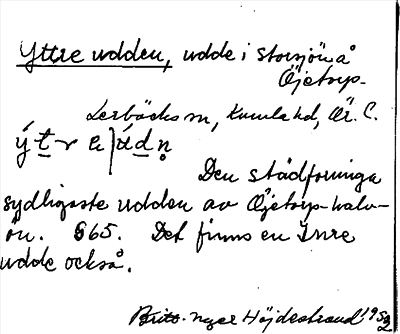 Yttre udden, udde i Storsjön å
Öjetorp.
Lerbäcks sn, Kumla hd, Ör. l.
ý t r e | ú d n̥
Den städformiga
sydligaste udden av Öjetorp-halv-
ön. 865. Det finns en Inre
udde också.
Britt-Inger Höjdestrand 1952